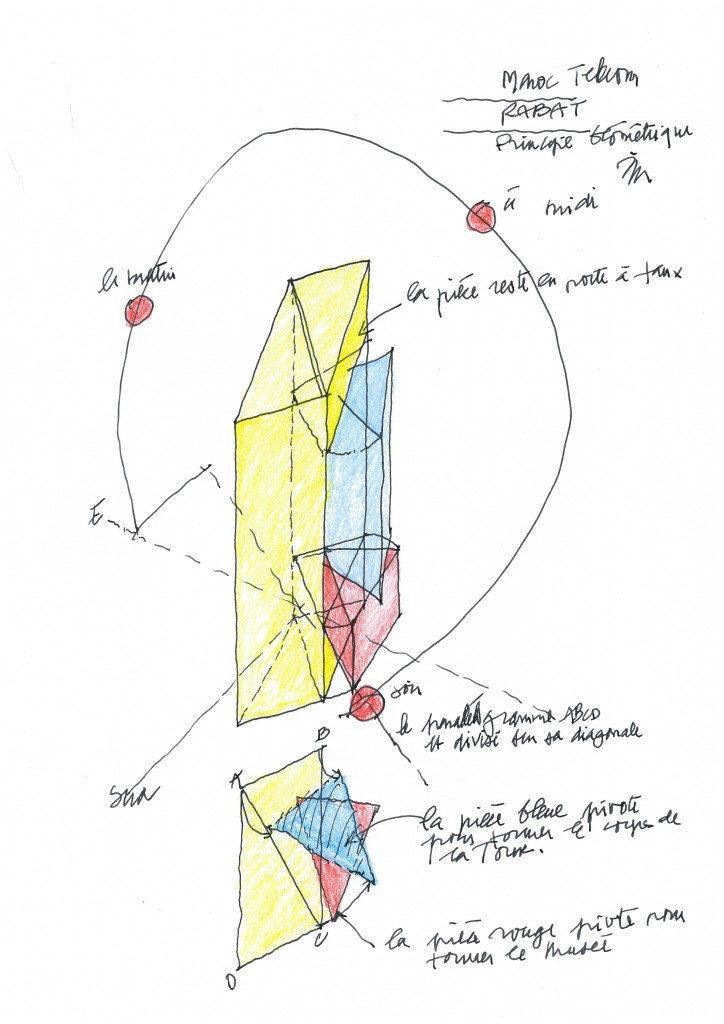 Maroc Telecom
RABAT
Principe Géométrique
à midi
le matin
la pièce reste en porte à faux
E
soir
le parallélogramme ABCD
est divisé sur sa diagonale
SUD
B
A
la pièce bleue pivote
pour former le corps de
la Tour.
C
la pièce rouge pivote pour
former le Musée
D